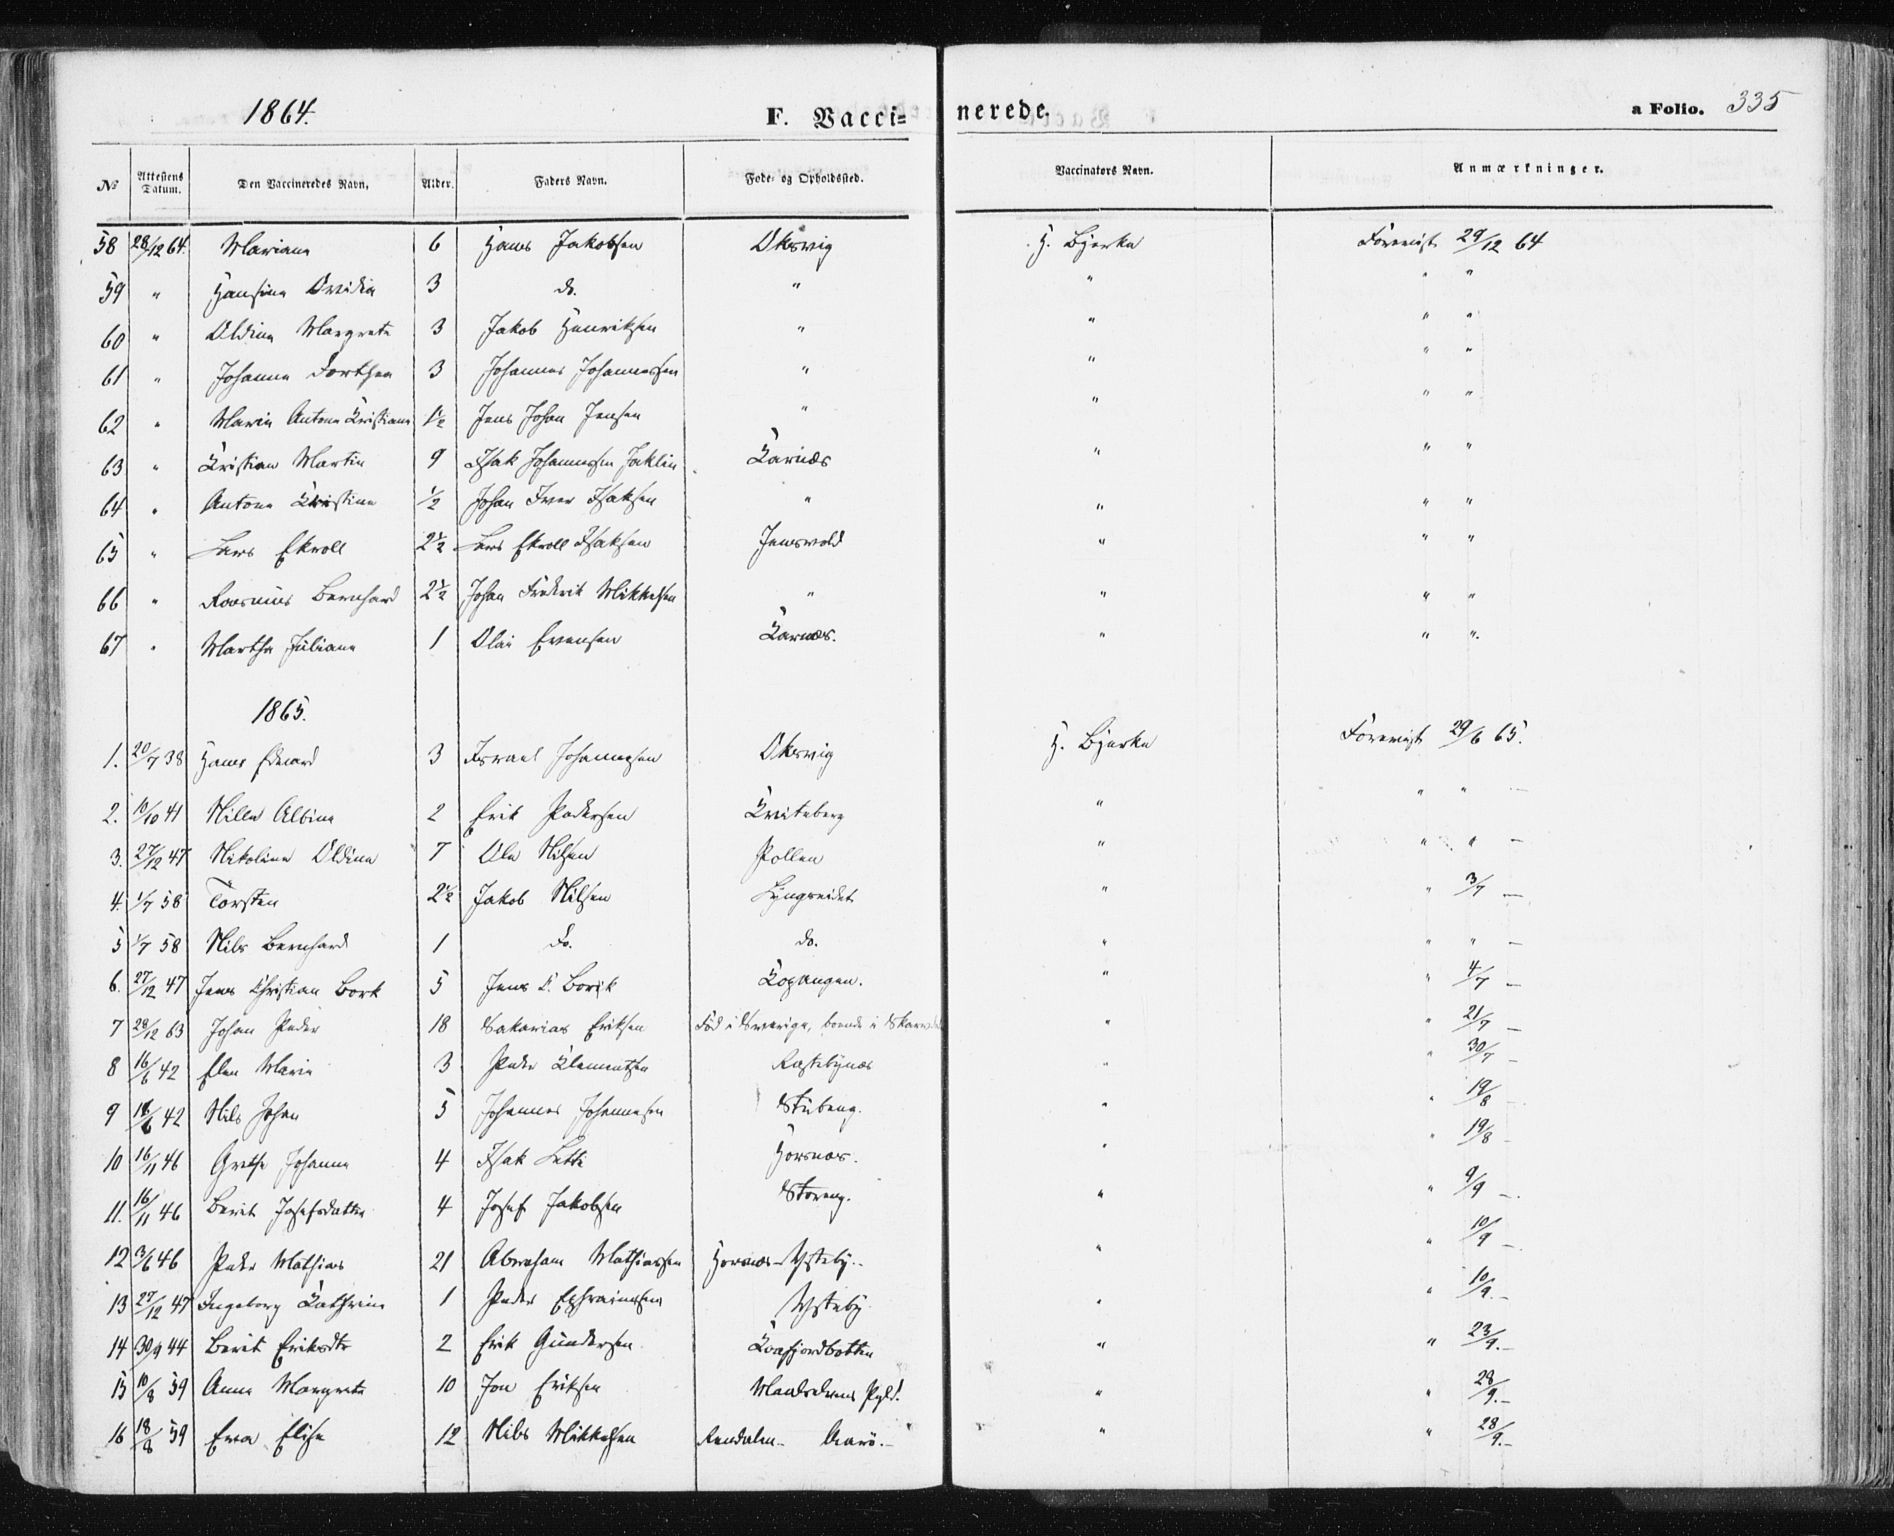 1864. F. Vacci= nerede. a Folio. 335
No Attestens Datum. Den Vaccineredes Navn. Alder. Faders Navn. Føde- og Opholdssted. Vaccinators Navn. Anmærkninger.
58 28/12 64. Mariane 6 Hans Jakobsen Oksvig H. Bjerke Forevist 29/12 64
59 " Hansine Ovidia 3 do. " " " "
60 " Oldine Margrete 3 Jakob Henriksen " " " "
61 " Johanne Dorthea 3 Johannes Johannessen " " " "
62 " Marie Antone Kristiane 1½ Jens Johan Jensen " " " "
63 " Kristian Martin 9 Isak Johannessen Jaklin Karnæs " " "
64 " Antone Kristine ½ Johan Iver Isaksen " " " "
65 " Lars Ekroll 2½ Lars Ekroll Isaksen Jensvold " " "
66 " Rasmus Bernhard 2½ Johan Fredrik Mikkelsen " " " "
67 " Martha Juliane 1 Olai Evensen Karnæs. " " "
1865.
1. 20/7 38 Hans Edvard 3 Israel Johannesen Oksvig H. Bjerke Forevist 29/6 65.
2. 10/10 41 Nille Albine 2 Erik Pedersen Kviteberg " " "
3. 27/12 47 Nikoline Oldine 7 Ole Nilsen Pollen " " " —
4. 1/7 58 Torsten 2½ Jakob Nilsen Lyngseidet " " 3/7 —
5 1/7 58 Nils Bernhard 1 Do. do. " " " —
6. 27/12 47 Jens Christian Bork 5 Jens C. Bork Kopangen. " " 4/7 —
7 28/12 63 Johan Peder 18 Sakarias Eriksen Fød i Sverige, boende i " " 21/7 —
8 16/6 42 Elen Marie 3 Peder Clementsen Rastebynæs " " 30/7 —
9 18/6 42 Nils Johan 5 Johannes Johannesen Stubeng. " " 19/8 —
10 16/11 46 Grethe Johanne 4 Isak Horsnæs. " " 19/8 —
11. 16/11 46 Berit Josefsdatter 4 Josef Jakobsen Storeng. " " 9/9 —
12 3/6 46 Peder Mathias 21 Abraham Mathiassen Horsnæs - Ysteby.. " " 10/9 —
13 27/12 47 Ingeborg Kathrine 1 Peder Ephraimsen Ysteby. " " 10/9. —
14 30/9 44 Berit Eriksdtr 2 Erik Gundersen Kvæfjordbotten " " 23/9. —
15 10/8 59 Anne Margrete 10 Jon Eriksen Pgld. " " 28/9. —
16 18/8 59 Eva Elise 12 Nils Mikkelsen Rendalen - " " 28/9. —